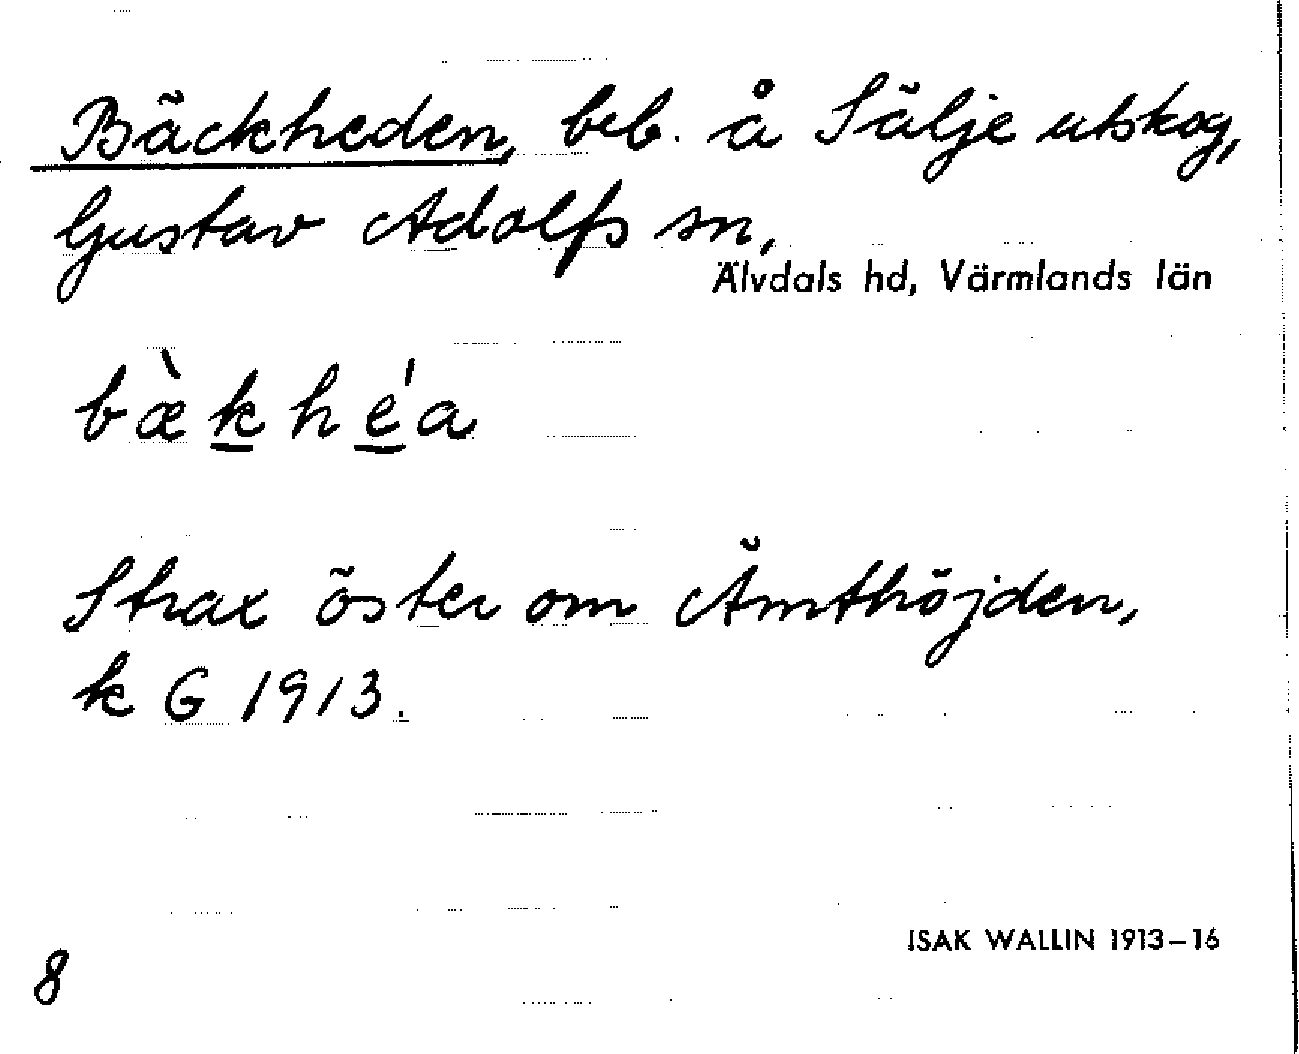 Bäckheden, beb. å Sälje utskog,
Gustav Adolfs sn,
Älvdals hd, Värmlands län
bæ̀k̲hé̲a
Strax öster om Ämthöjden,
k G 1913.
ISAK WALLIN 1913–16
8